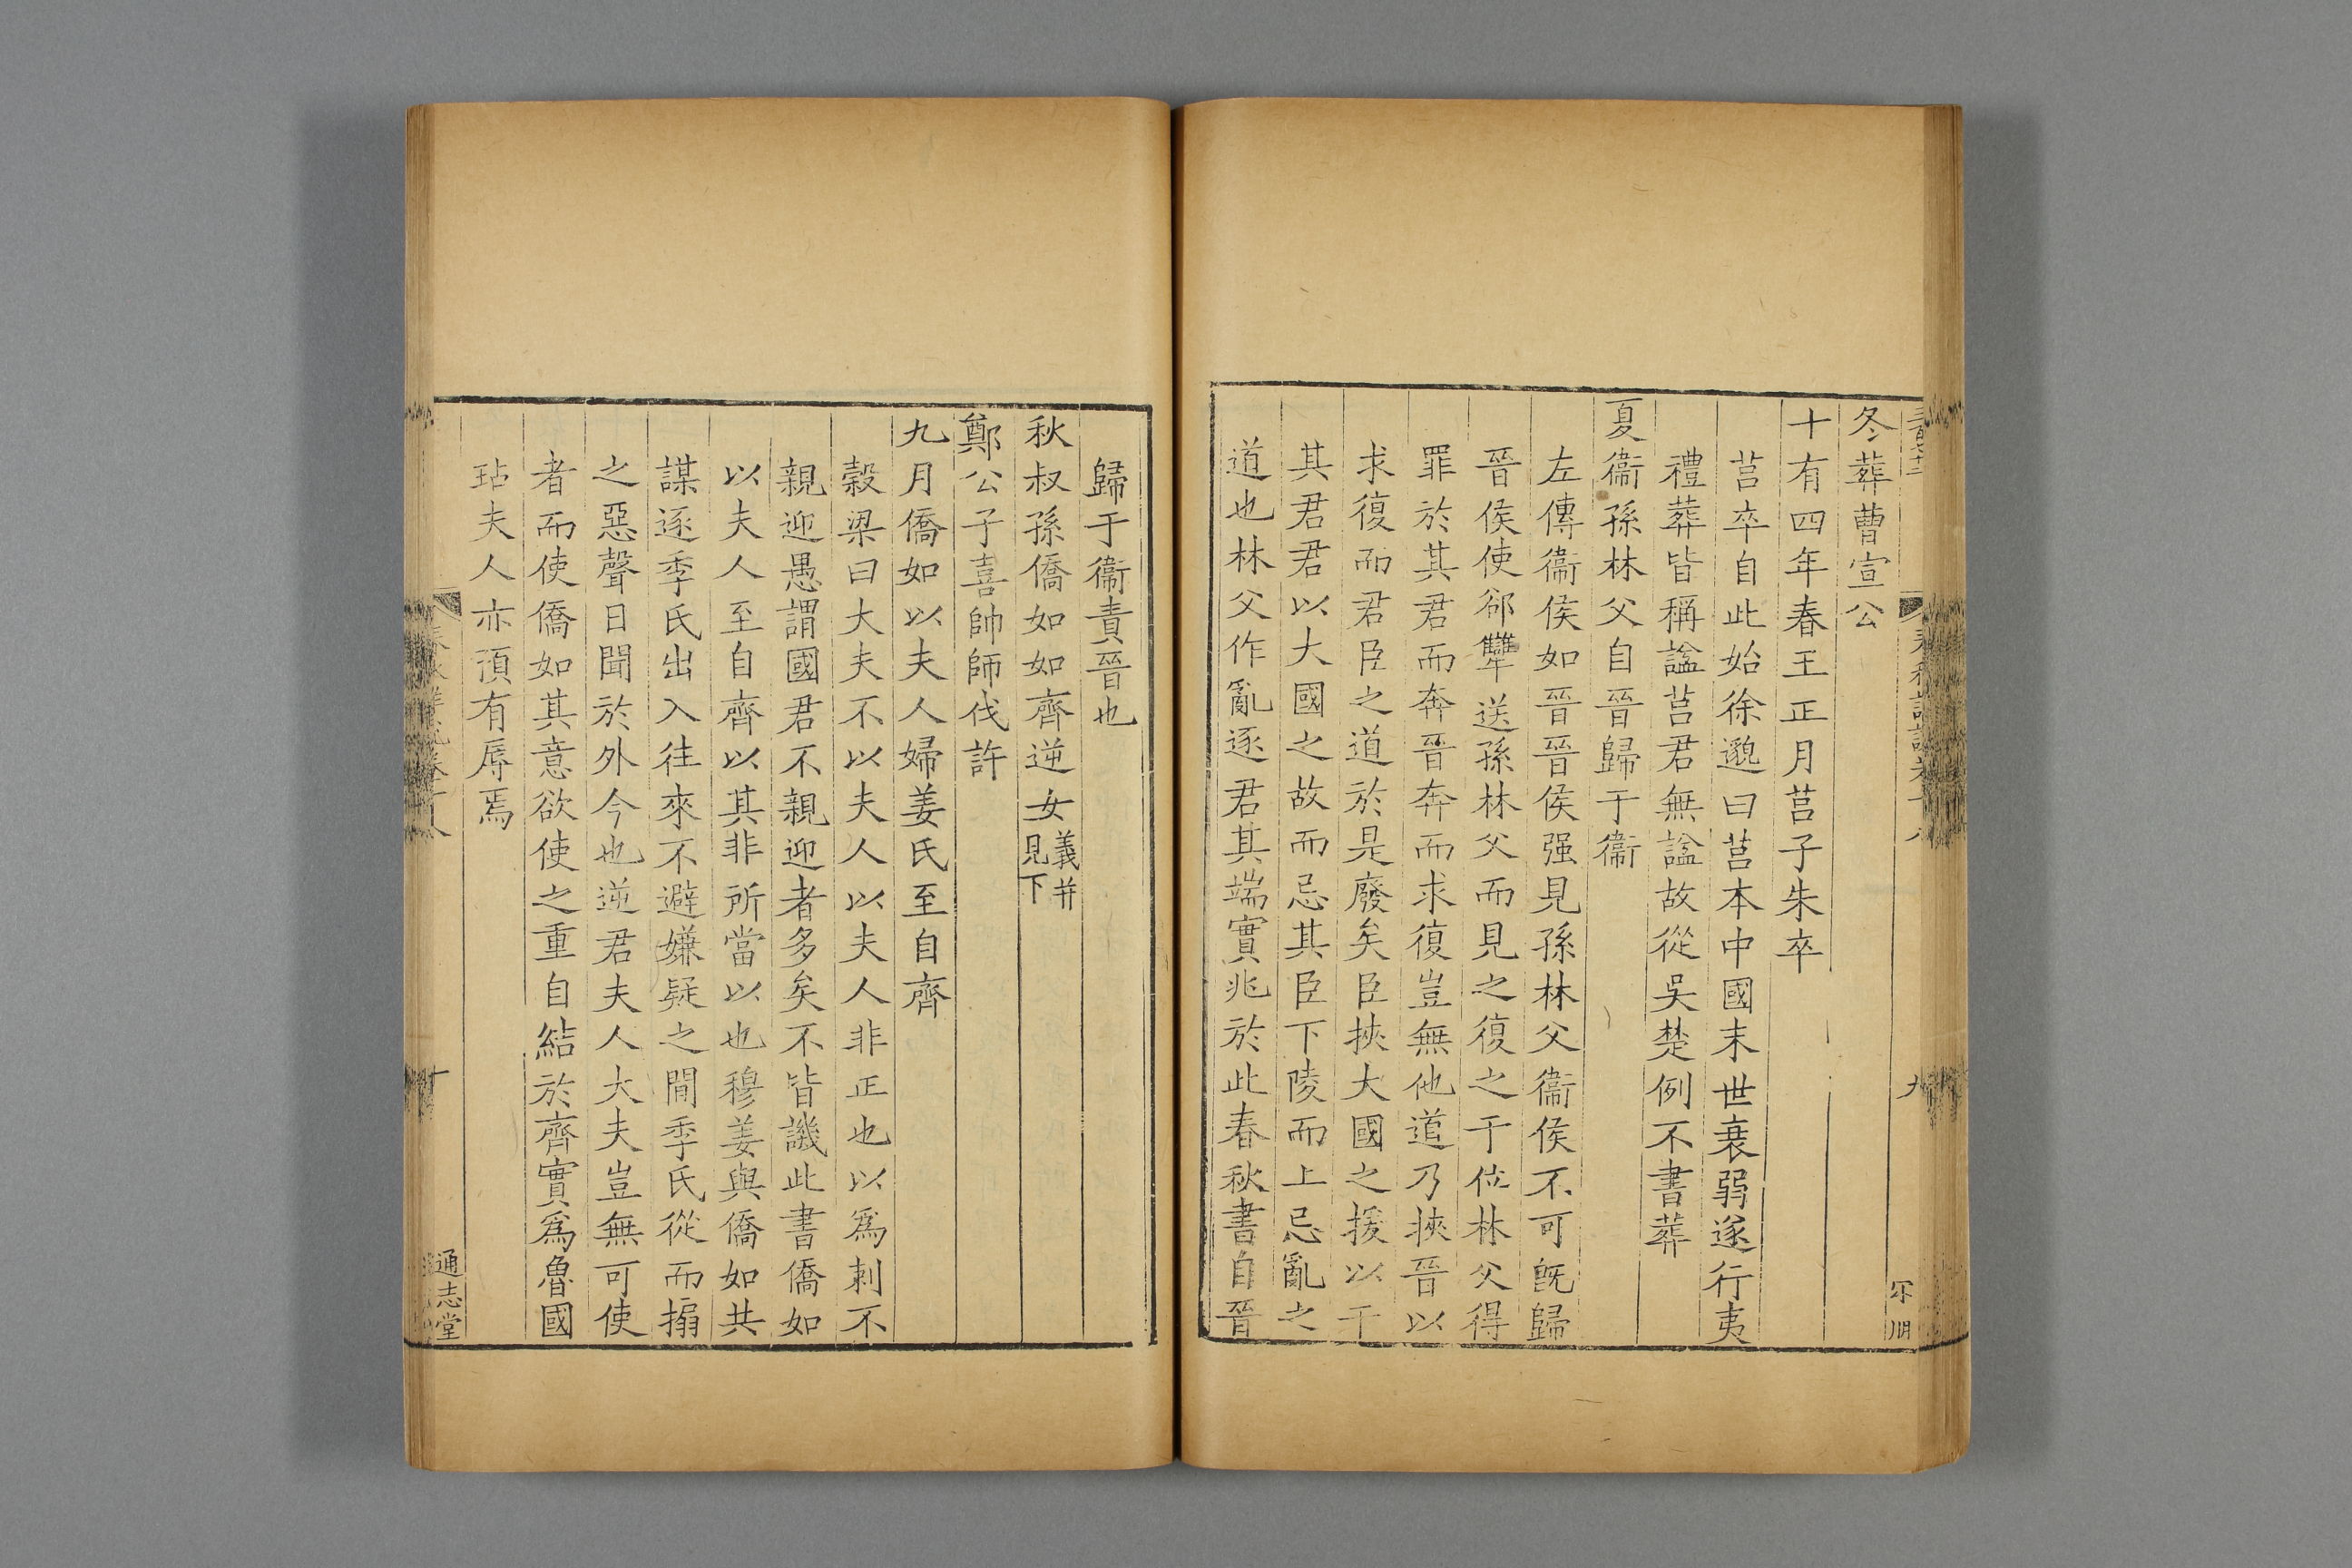 冬葬曹宣公
十有四年春王正月莒子朱卒
莒卒自此始徐邈曰莒本中國末世衰弱遂行夷
禮葬皆稱諡莒君無諡故從吳楚例不書葬
夏衞孫林父自晉歸于衞
左傳衞侯如晉晉侯强見孫林父衞侯不可旣歸
晉侯使郤犨送孫林父而見之復之于位林父得
罪於其君而奔晉奔而求復豈無他道乃挾晉以
求復而君臣之道於是廢矣臣挾大國之援以干
其君君以大國之故而忌其臣下陵而上忌亂之
道也林父作亂逐君其端實兆於此春秋書自晉
歸于衞責晉也
秋叔孫僑如如齊逆女義并見下
鄭公子喜帥師伐許
九月僑如以夫人婦姜氏至自齊
穀梁曰大夫不以夫人以夫人非正也以爲刺不
親迎愚謂國君不親迎者多矣不皆譏此書僑如
以夫人至自齊以其非所當以也穆姜與僑如共
謀逐季氏出入往來不避嫌疑之間季氏從而搦
之惡聲日聞於外今也逆君夫人大夫豈無可使
者而使僑如其意欲使之重自結於齊實爲魯國
玷夫人亦預有辱焉
通志堂